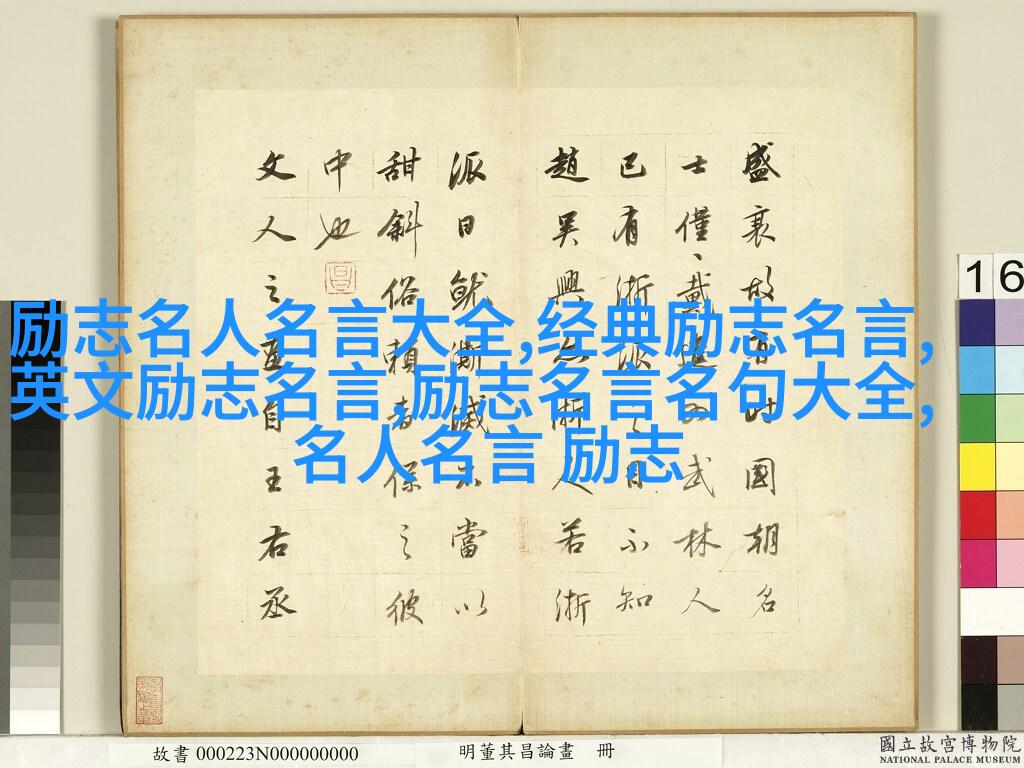 励志名人名言大全,经典励志名言,
英文励志名言,励志名言名句大全,
名人名言 励志
盛衰故有時國朝名
士僅、戴進為武林人
已有浙派之目不知
趙吳興亦浙人若浙
派日就澌滅不當以
甜斜俗賴者係之彼
中也
文人之畫自王右丞
16
故書 000223N000000000
明董其昌論畫 冊
國立故宮博物院
NATIONAL PALACE MUSEUM